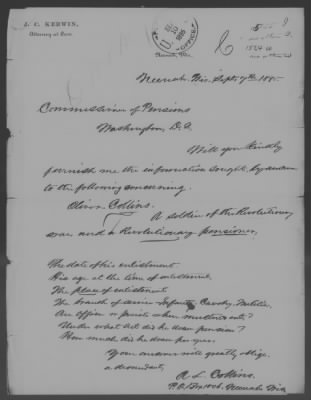 J. C. KERWIN,
Attorney at Law.
Neenah, Wis.
OFFICE
Neenah, Wis. Sept. 7th 1895
Commissioner of Pensions
Washington, D.C.
Will you kindly
furnish me the information sought, by answer
to the following concerning
Oliver Collins.
A soldier of the Revolutionary
war, and a Revolutionary pensioner,
The date of his enlistment
His age at the time of enlistment
The place of enlistment
The branch of service Infantry Cavalry, Militia,
An officer or private when mustered out?
Under what Act did he draw pension?
How much did he draw per year.
Your answer will greatly oblige.
a descendant,
A L Collins.
P.O. Box 1006. Neenah Wis